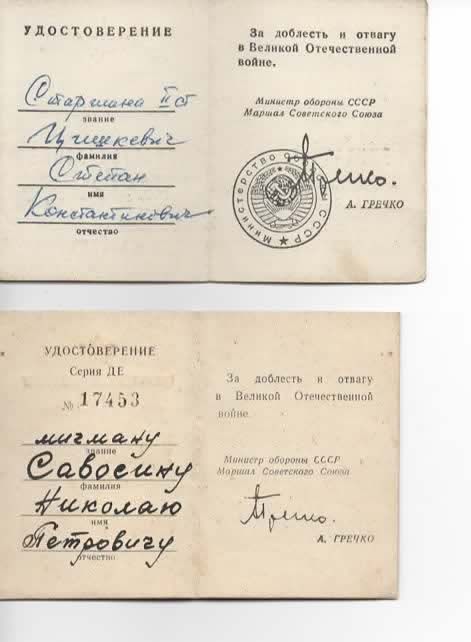 УДОСТОВЕРЕНИЕ
Старшина II ст
звание
Цишкевич
фамилия
Степан
имя
Константинович
отчество
За доблесть и отвагу
в Великой Отечественной
войне.
Министр обороны СССР
Маршал Советского Союза
Министерство обороны СССР
Гречко.
А. ГРЕЧКО
УДОСТОВЕРЕНИЕ
Серия ДЕ
№ 17453
мичману
звание
Савосину
фамилия
Николаю
имя
Петровичу
отчество
За доблесть и отвагу
в Великой Отечественной
войне.
Министр обороны СССР
Маршал Советского Союза
Гречко.
А. ГРЕЧКО